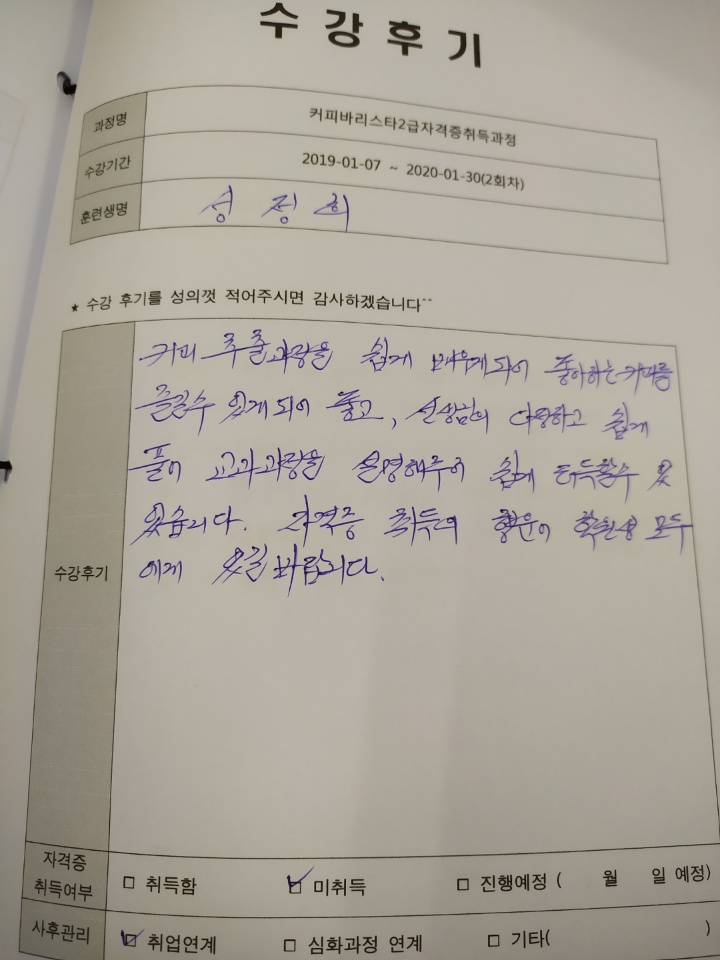 수강후기
과정명 커피바리스타2급자격증취득과정
수강기간 2019-01-07 ~ 2020-01-30(2회차)
훈련생명 성정희
★ 수강 후기를 성의껏 적어주시면 감사하겠습니다^^
커피 추출과정을 쉽게 배우게되어 좋아하는커피를
즐길수 있게 되어 좋고, 선생님의 다정하고 쉽게
풀어 교과과정을 설명해주어 쉽게 터득할수 있
수강후기
있습니다. 자격증 취득의 행운이 학원생 모두
에게 있길 바랍니다.
자격증 취득여부 □ 취득함 ☑ 미취득 □ 진행예정 ( 월 일 예정)
사후관리 ☑ 취업연계 □ 심화과정 연계 □ 기타( )